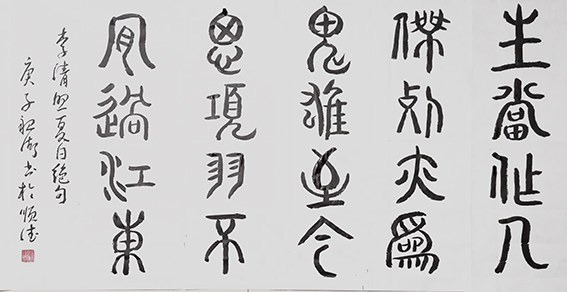 生當作人
傑死亦爲
鬼雄至今
思項羽不
肯過江東
李清照夏日絕句
庚子书於順德